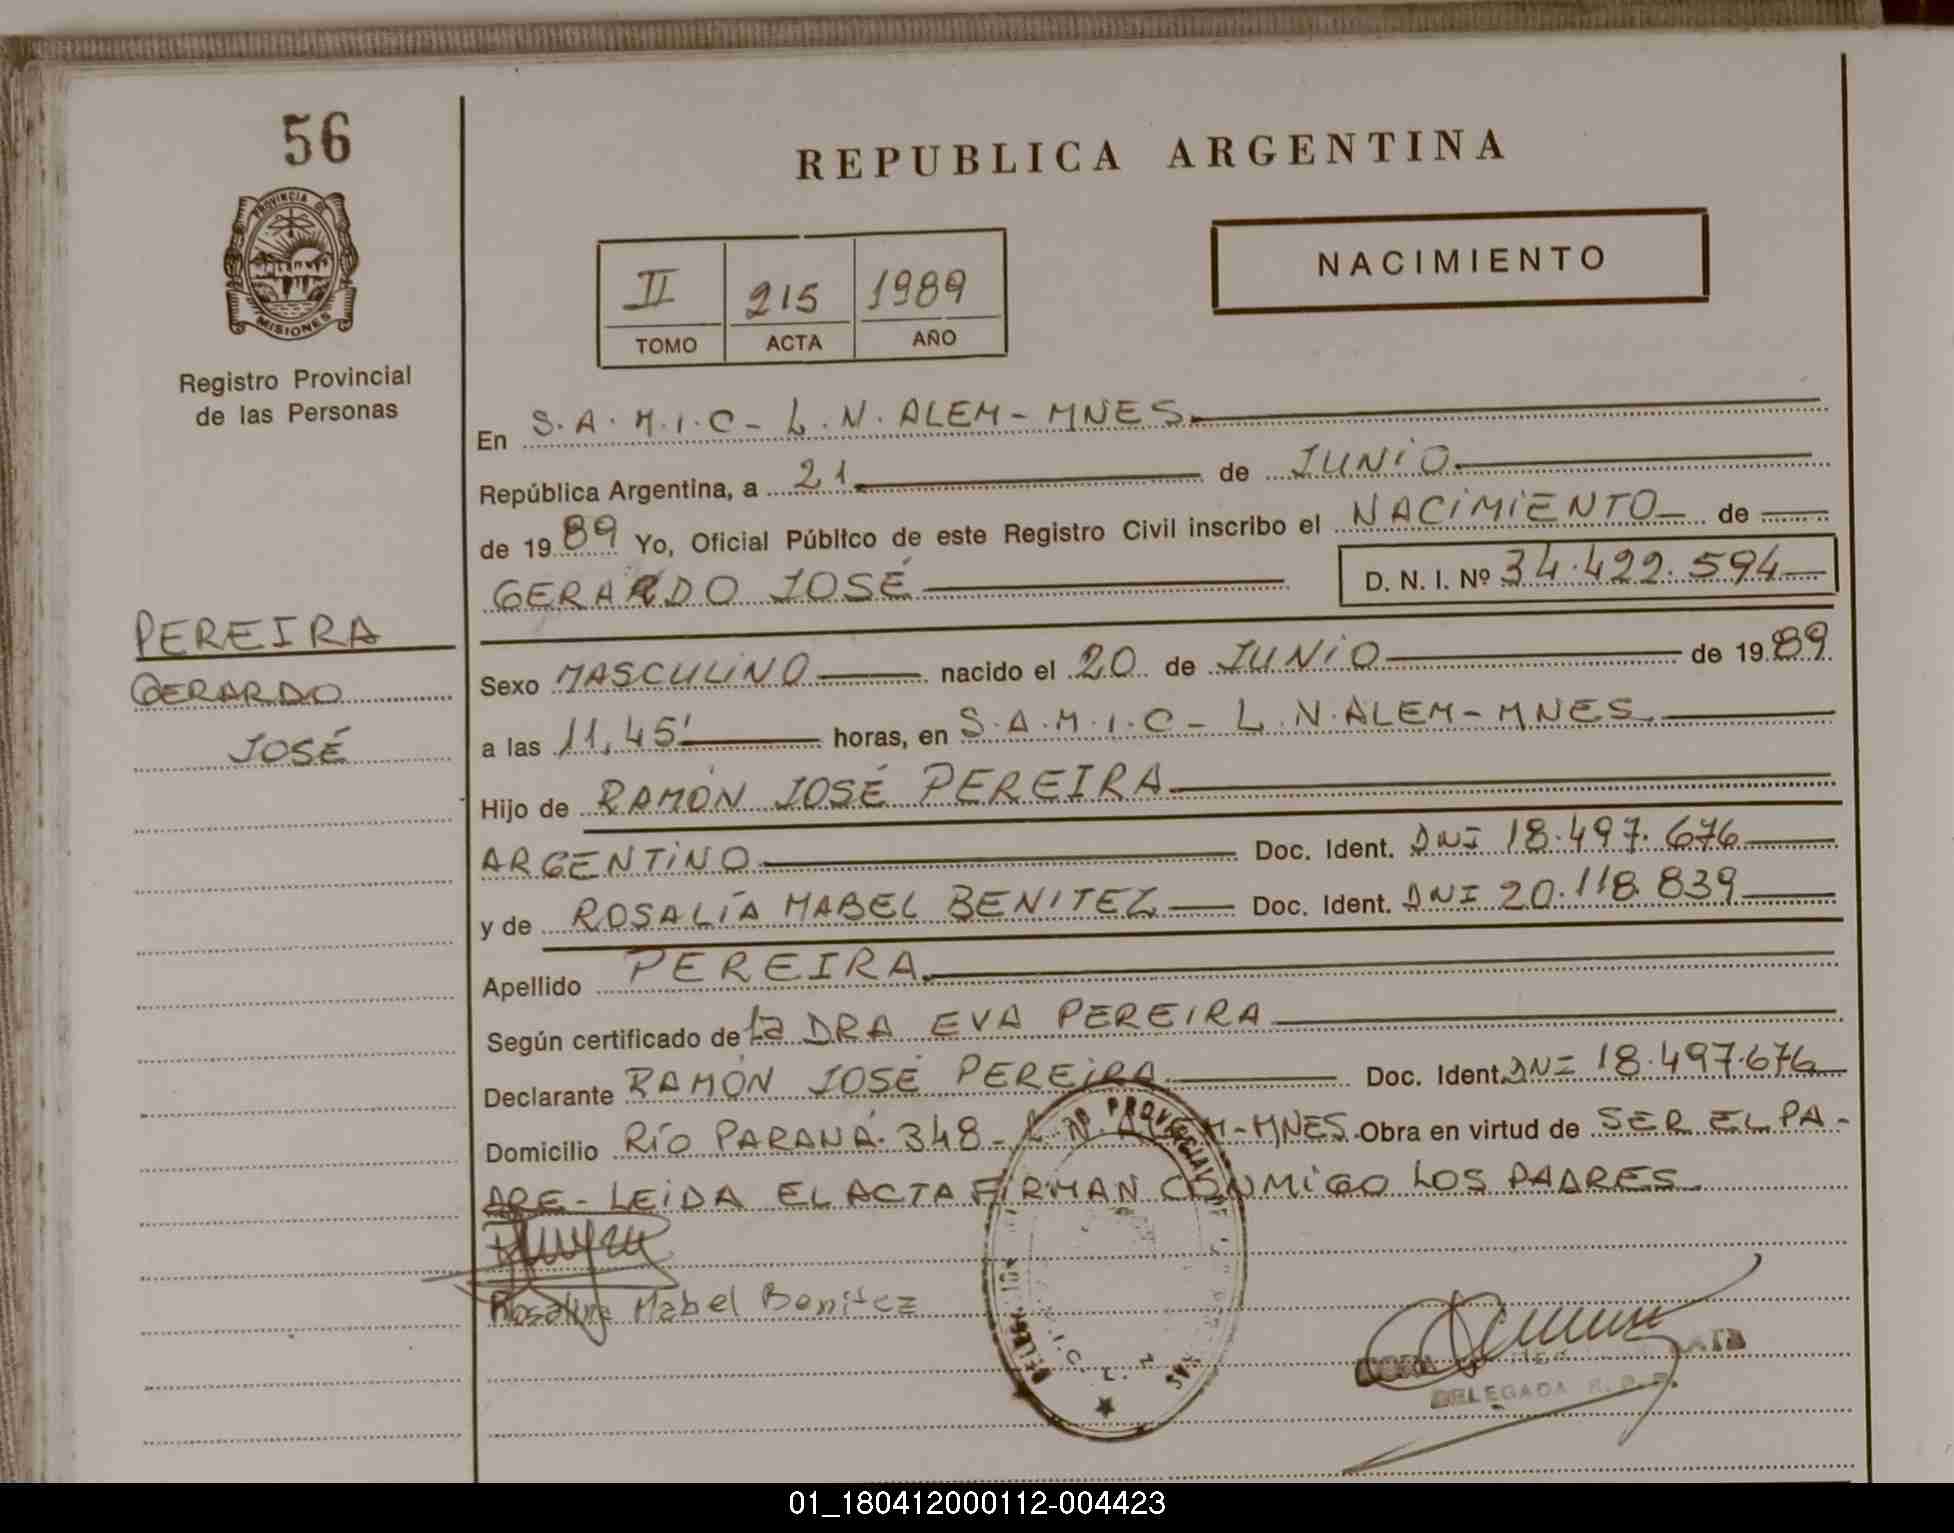 56
REPUBLICA ARGENTINA
PROVINCIA DE
MISIONES
Registro Provincial
de las Personas
II 215 1989
TOMO ACTA AÑO
NACIMIENTO
En S.A.M.I.C - L.N.ALEM - MNES
República Argentina, a 21 de JUNIO
de 1989 Yo, Oficial Público de este Registro Civil inscribo el NACIMIENTO de
GERARDO JOSÉ D. N. I. Nº 34.422.594
PEREIRA
GERARDO
JOSÉ
Sexo MASCULINO nacido el 20 de JUNIO de 1989
a las 11,45' horas, en S.A.M.I.C - L.N.ALEM - MNES
Hijo de RAMÓN JOSÉ PEREIRA
ARGENTINO Doc. Ident. DNI 18.497.676
y de ROSALÍA MABEL BENITEZ Doc. Ident. DNI 20.118.839
Apellido PEREIRA
Según certificado de la DRA EVA PEREIRA
Declarante RAMÓN JOSÉ PEREIRA Doc. Ident. DNI 18.497.676
Domicilio RÍO PARANÁ 348 - L.N.ALEM - MNES. Obra en virtud de SER EL PA-
DRE - LEIDA EL ACTA FIRMAN CONMIGO LOS PADRES
Rosalia Mabel Benitez
PROVINCIAL DE
DELEGADA R.P.P.
01_180412000112-004423